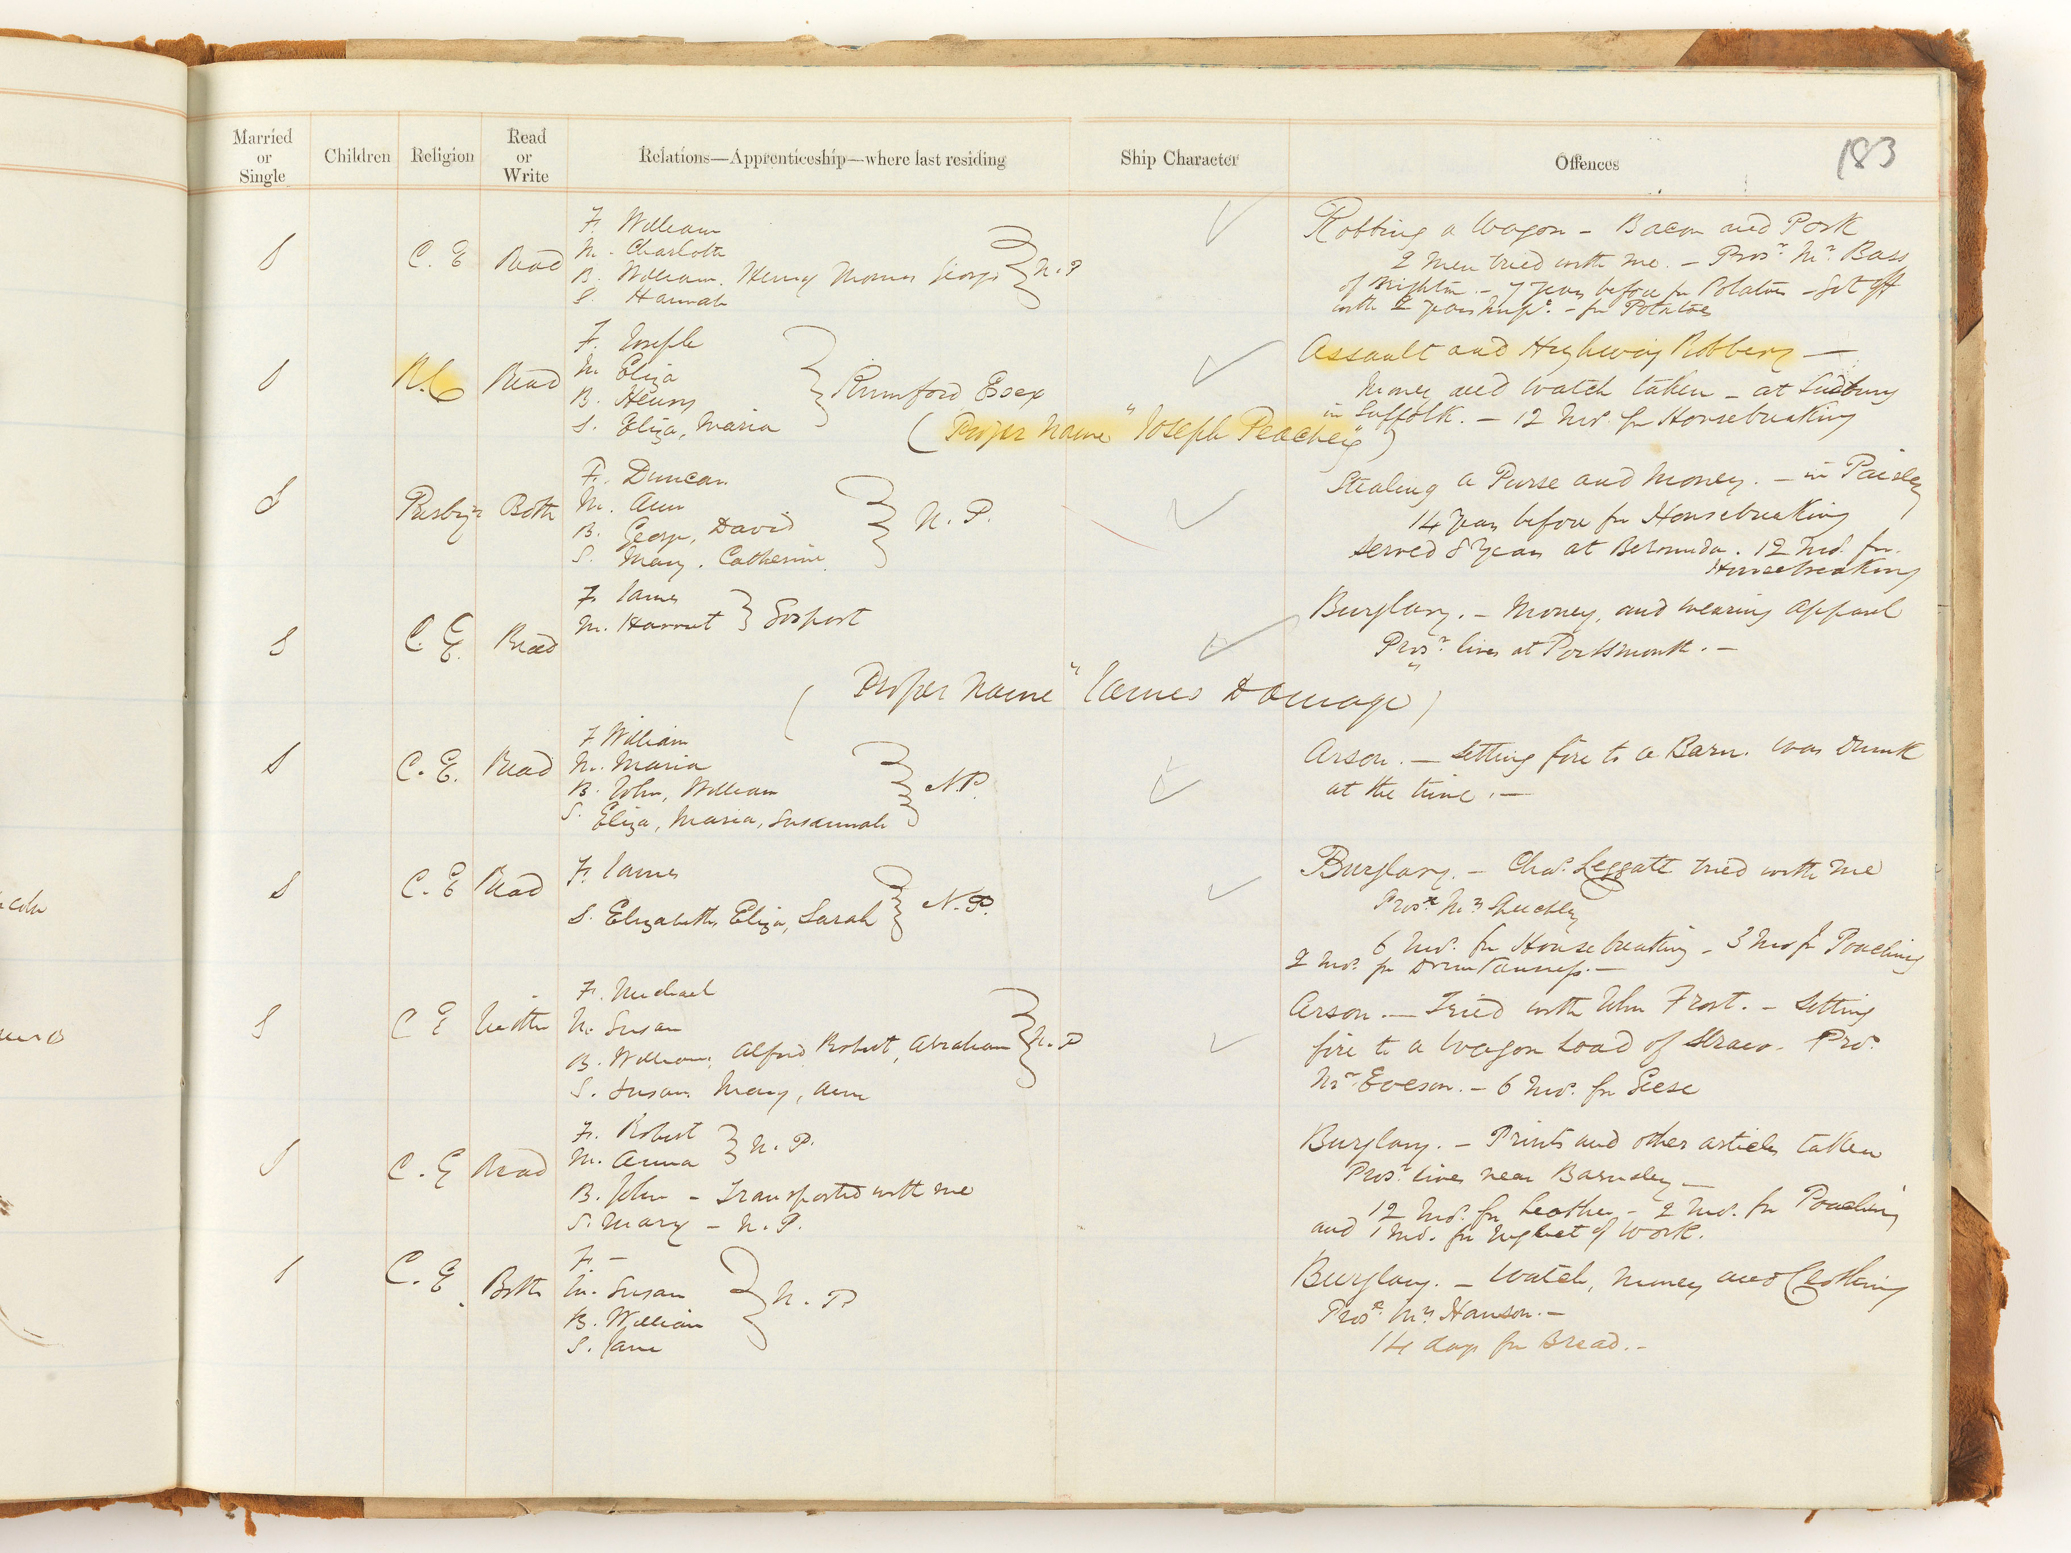 183
Married or Single
Children
Religion
Read or Write
Relations—Apprenticeship—where last residing
Ship Character
Offences
S
C. E
Read
F. William
M. Charlotte
B. William. Henry Thomas George
S. Hannah
N. P
Robbing a Wagon – Bacon and Pork
2 Men tried with me. – Prosr. Mr. Bass
of – 7 years before for Potatoes – Got off
with 2 years – for Potatoes
S
R.C
Read
F. Joseph
M. Eliza
B. Henry
S. Eliza, Maria
Rumford Essex
(Proper Name "Joseph Peachey")
Assault and Highway Robbery —
Money and Watch taken – at Sudbury
in Suffolk. – 12 Mos. for Housebreaking
S
Presbyn
Both
F. Duncan
M. Ann
B. George, David
S. Mary. Catherine
N. P.
Stealing a Purse and Money. – in Paisley
14 years before for Housebreaking
served 8 Years at Bermuda. 12 Mos. for
Housebreaking
S
C. E.
Read
F. James
M. Harriet
Gosport
Burglary. – Money, and wearing apparel
Prosr. lives at Portsmouth. –
(Proper Name "James Damage")
S
C. E.
Read
F William
M. Maria
B. John, William
S. Eliza, Maria, Susannah
N.P.
Arson. – Setting fire to a Barn. was Drunk
at the time. –
S
C. E
Read
F. James
S. Elizabeth, Eliza, Sarah
N. P.
Burglary. – Chas. Leggatt tried with me
Prosr. Mr.
6 Mos. for Housebreaking – 3 Mos for Poaching
2 Mos. for Drunkenness. –
S
C E
Neither
F. Michael
M. Susan
B. William, Alfred Robert, Abraham
S. Susan Mary, Ann
N. P
Arson. — Tried with John Frost. – Setting
fire to a Wagon Load of Straw. Pros.
Mr. Eveson. – 6 Mos. for Geese
S
C. E
Read
F. Robert
M. Anna
N. P.
B. John – Transported with me
S. Mary – N. P.
Burglary. – Prints and other articles taken
Prosr. lives near Barnsley –
12 Mos. for Leather – 2 Mos. for Poaching
and 1 Mo. for Neglect of Work.
S
C. E.
Both
F. –
M. Susan
B. William
S. Jane
N. P
Burglary. – Watch, Money and Clothing
Prosr. Mr. Hanson. –
14 days for Bread. –